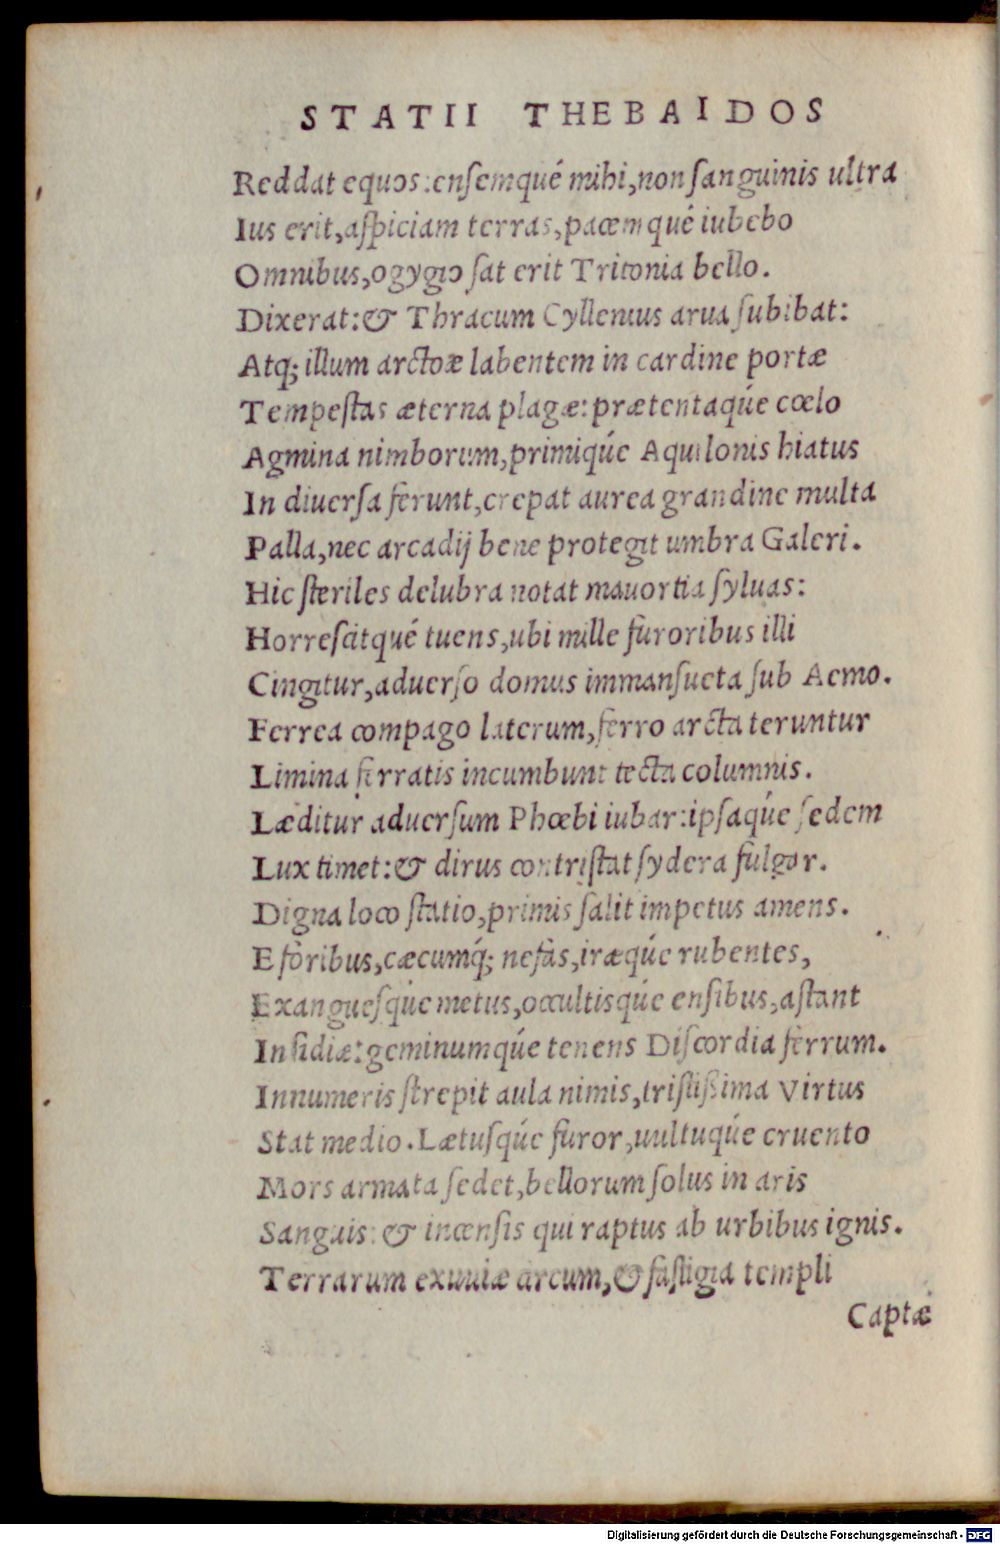 STATII THEBAIDOS
Reddat equos:ensemqué mihi,non sanguinis ultra
Ius erit,aspiciam terras,pacemqué iubebo
Omnibus,ogygio sat erit Tritonia bello.
Dixerat:& Thracum Cyllenius arua subibat:
Atq; illum arctoæ labentem in cardine portæ
Tempestas æterna plagæ:prætentaqúe cœlo
Agmina nimborum,primiqúe Aquilonis hiatus
In diuersa ferunt,crepat aurea grandine multa
Palla,nec arcadij bene protegit umbra Galeri.
Hic steriles delubra notat mauortia syluas:
Horrescitqué tuens,ubi mille furoribus illi
Cingitur,aduerso domus immansueta sub Aemo.
Ferrea compago laterum,ferro arcta teruntur
Limina ferratis incumbunt tecta columnis.
Læditur aduersum Phœbi iubar:ipsaqúe sedem
Lux timet:& dirus contristat sydera fulgor.
Digna loco statio,primis salit impetus amens.
E foribus,cæcumq́; nefas,iræqúe rubentes,
Exanguesqúe metus,occultisqúe ensibus,astant
Insidiæ:geminumqúe tenens Discordia ferrum.
Innumeris strepit aula nimis,tristissima Virtus
Stat medio.Lætusqúe furor,uultuqúe cruento
Mors armata sedet,bellorum solus in aris
Sanguis:& incensis qui raptus ab urbibus ignis.
Terrarum exuuiæ arcum,& fastigia templi
Captæ
Digitalisierung gefördert durch die Deutsche Forschungsgemeinschaft - DFG